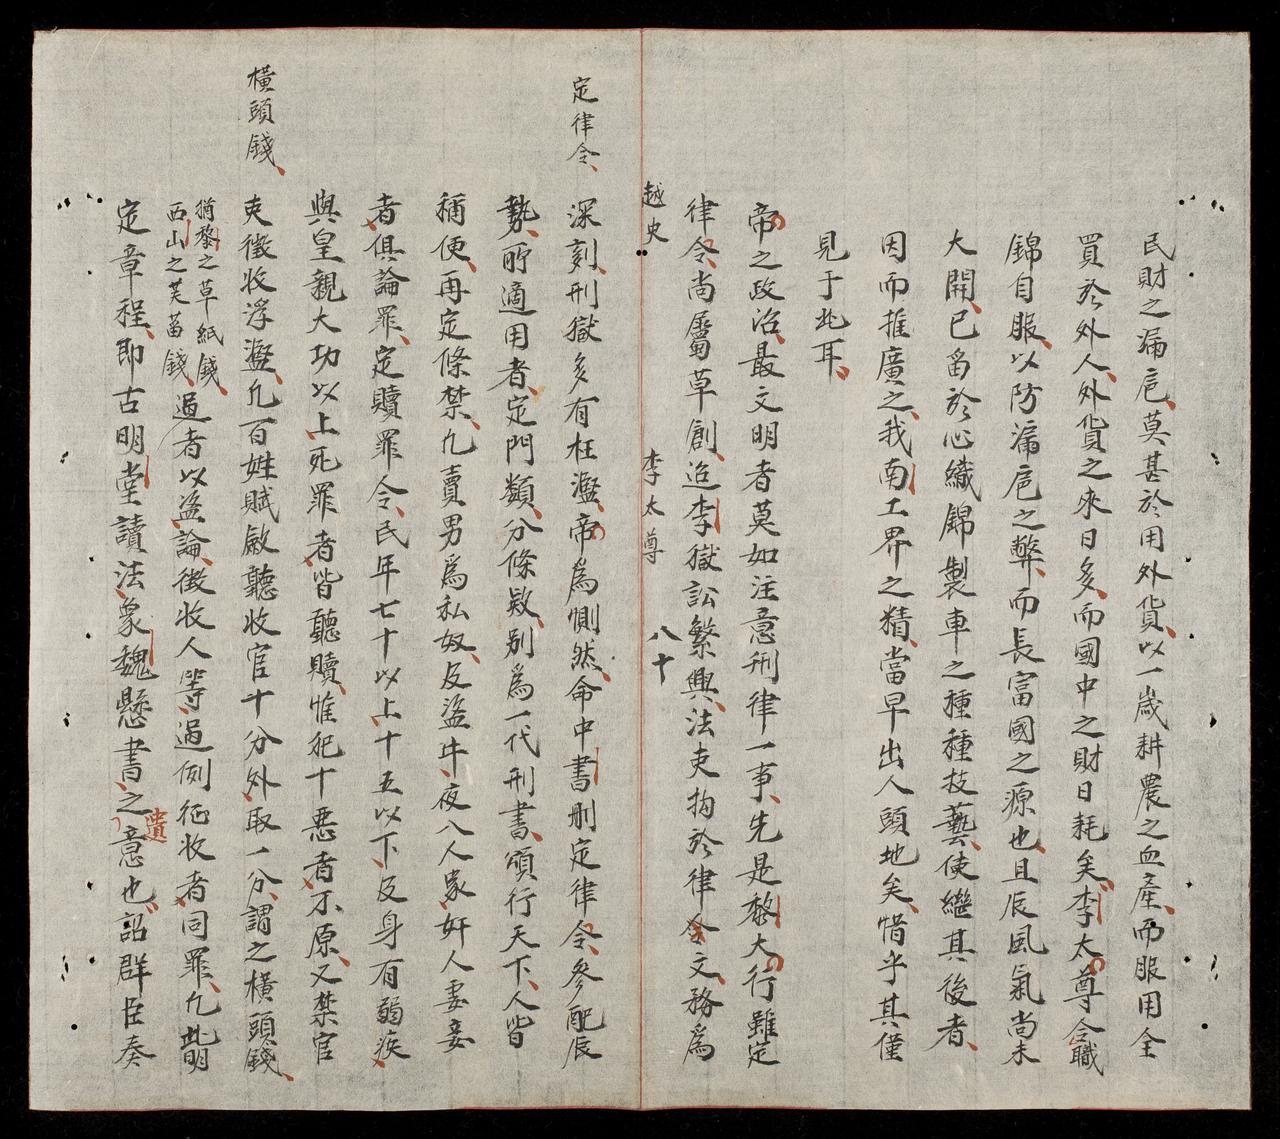 民財之漏卮莫甚於用外貨以一歲耕農之血產而服用全
買於外人外貨之來日多而國中之財日耗矣李太尊令職
錦自服以防漏卮之弊而長富國之源也且辰風氣尚未
大開已畱於心織錦製車之種種技藝使繼其後者
因而推廣之我南工界之精當早出人頭地矣惜乎其僅
見于此耳
帝之政治最文明者莫如注意刑律一事先是黎大行雖定
律令尚屬草創迨李獄訟繁興法吏拘於律令文務爲
越史 李太尊 八十
定律令
深刻刑獄多有枉濫帝爲惻然命中書刪定律令參配辰
勢所適用者定門類分條欵别爲一代刑書頒行天下人皆
稱便再定條禁凢賣男爲私奴及盜牛夜入人家奸人妻妾
者俱論罪定贖罪令民年七十以上十五以下及身有弱疾
與皇親大功以上死罪者皆聽贖惟犯十惡者不原又禁官
橫頭錢
吏徵收浮濫凢百姓賦斂聽收官十分外取一分謂之橫頭錢
猶黎之草紙錢
西山之芙蒥錢
過者以盜論徵收人等過例征收者同罪凢此皆明
定章程即古明堂讀法象魏懸書之遺意也詔群臣奏